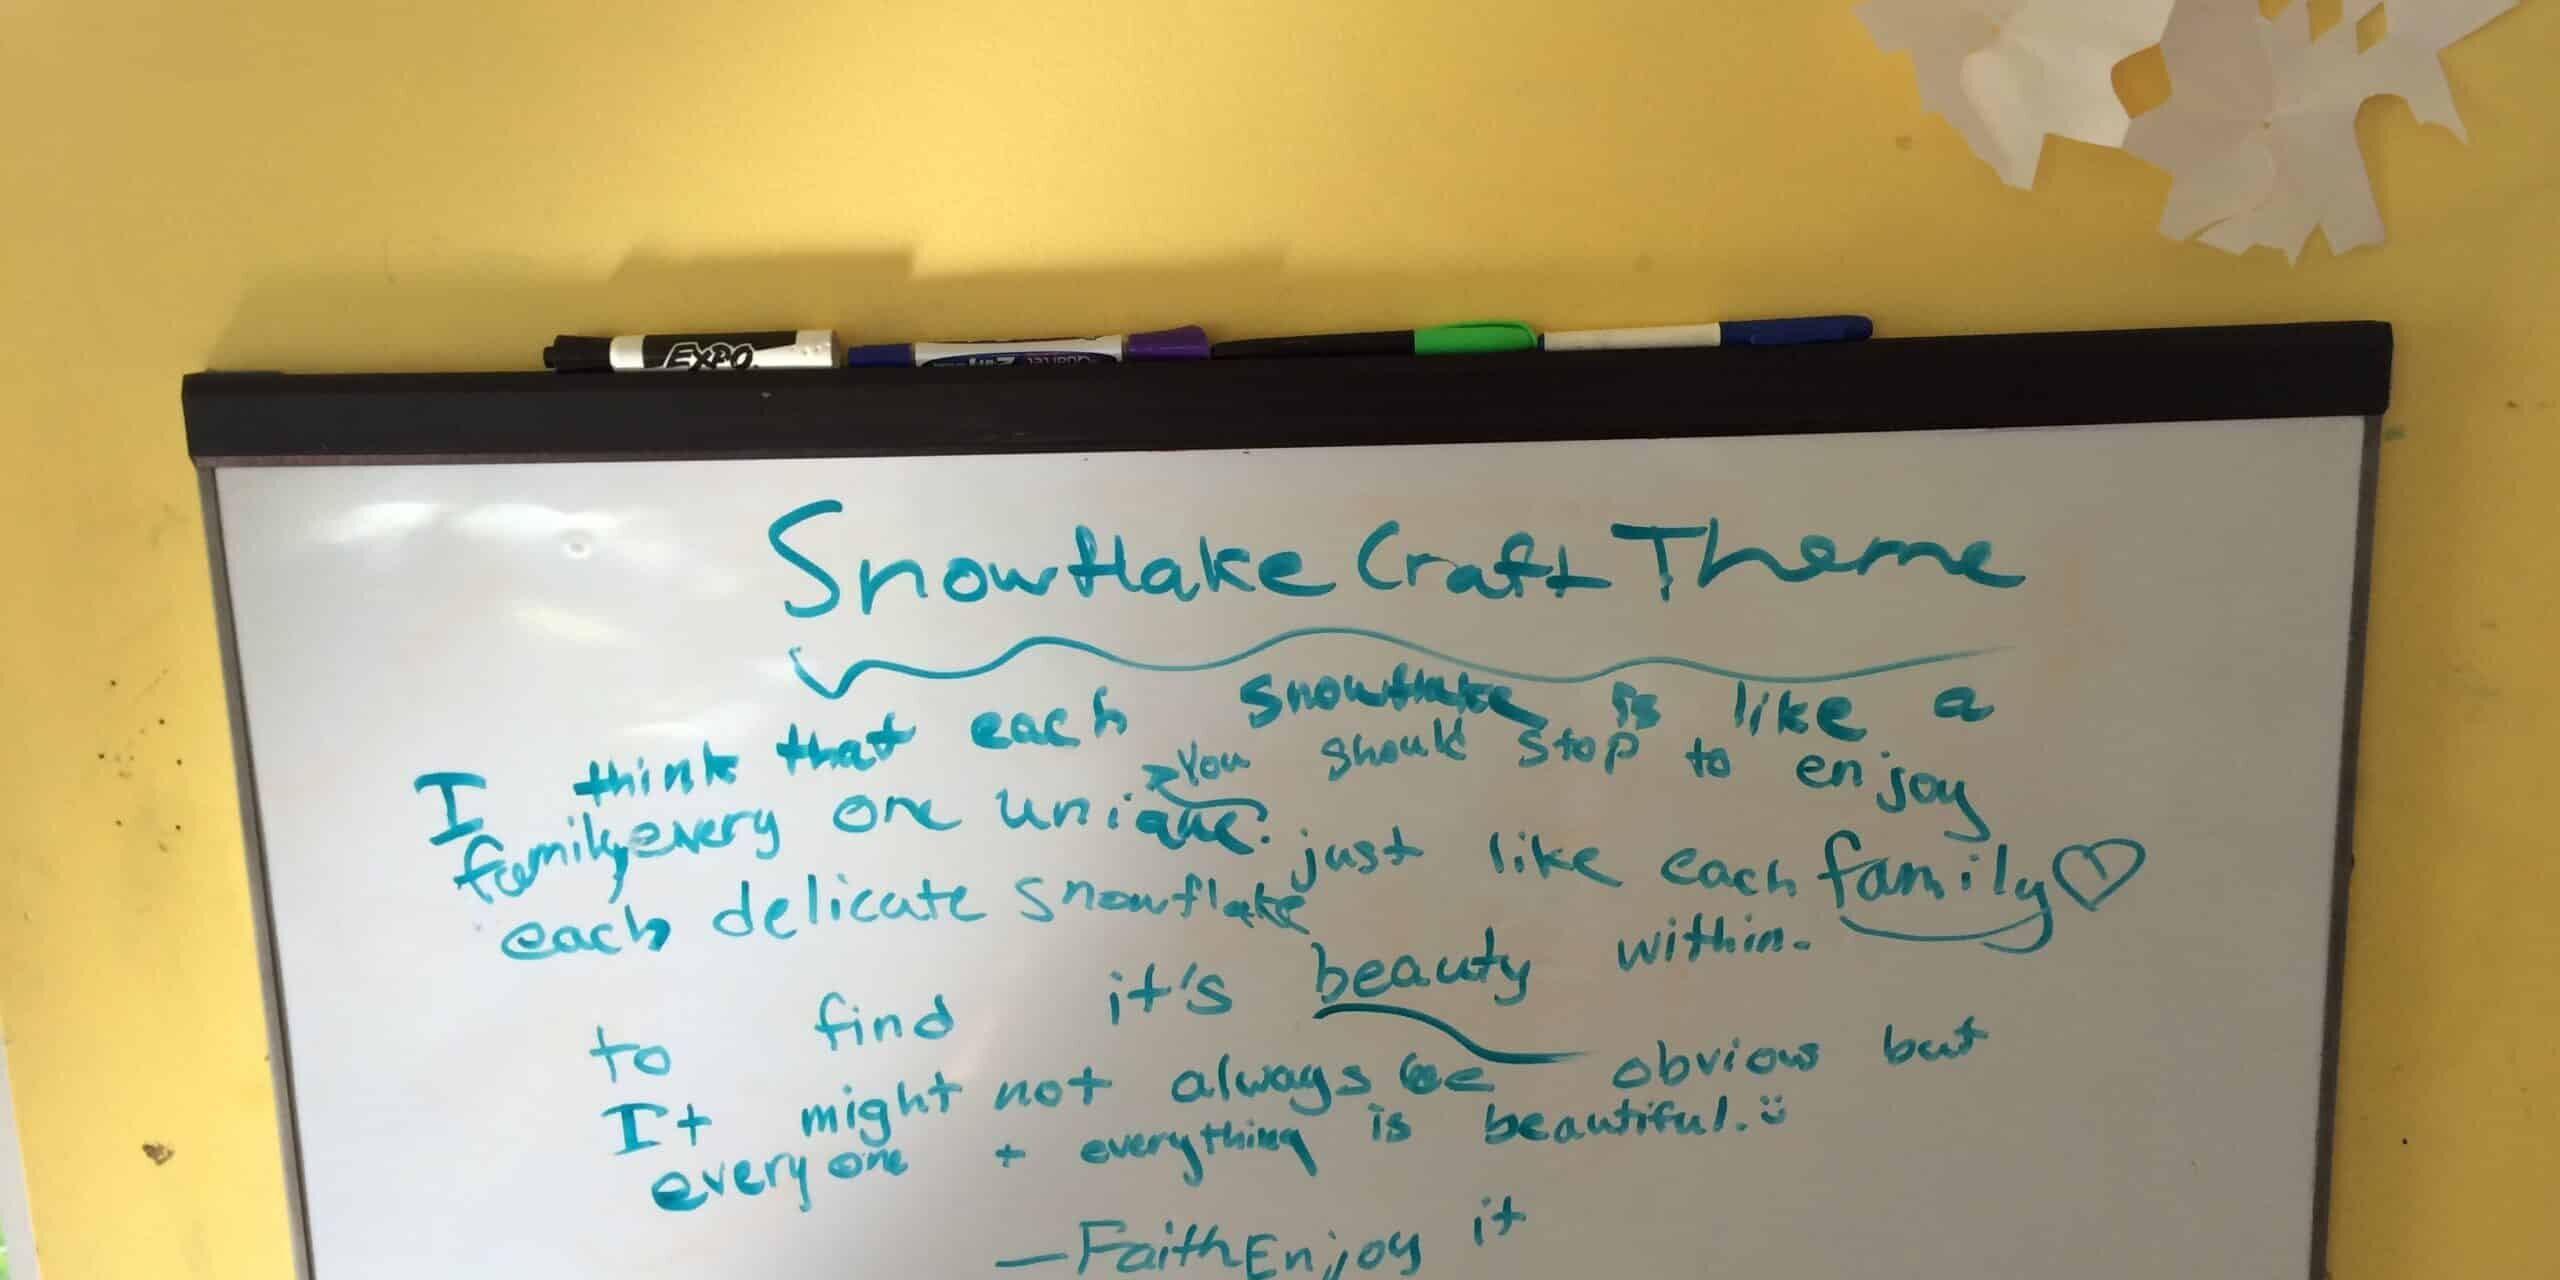 EXPO
Quartet
Snowflake Craft Theme
I think that each snowflake is like a
family, every one unique. You should stop to enjoy
each delicate snowflake just like each family
to find it's beauty within.
It might not always be obvious but
everyone + everything is beautiful.
—Faith Enjoy it